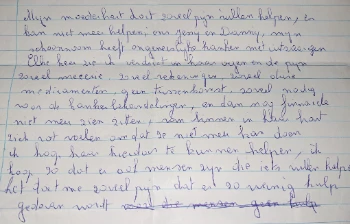 Mijn moederhart doet zoveel pijn willen helpen, en
kan niet meer helpen, ons Jeny en Danny, mijn
schoonzoon heeft ongeneeslijke kanker met uitzaaiingen
Elke keer zie ik verdriet in haar ogen en de pijn
zoveel miserie, zoveel rekeningen, zoveel dure
medicamenten, geen tussenkomst, zoveel nodig
voor de kankerbehandelingen, en dan nog financiële
niet meer zien zitten, van binnen in hart
zich rot voelen omdat ze niet meer kan doen
ik hoop haar hierdoor te kunnen helpen, ik
hoop zo dat er ooit mensen zijn die iets willen helpen
het doet me zoveel pijn dat er zo weinig hulp
gedaan wordt